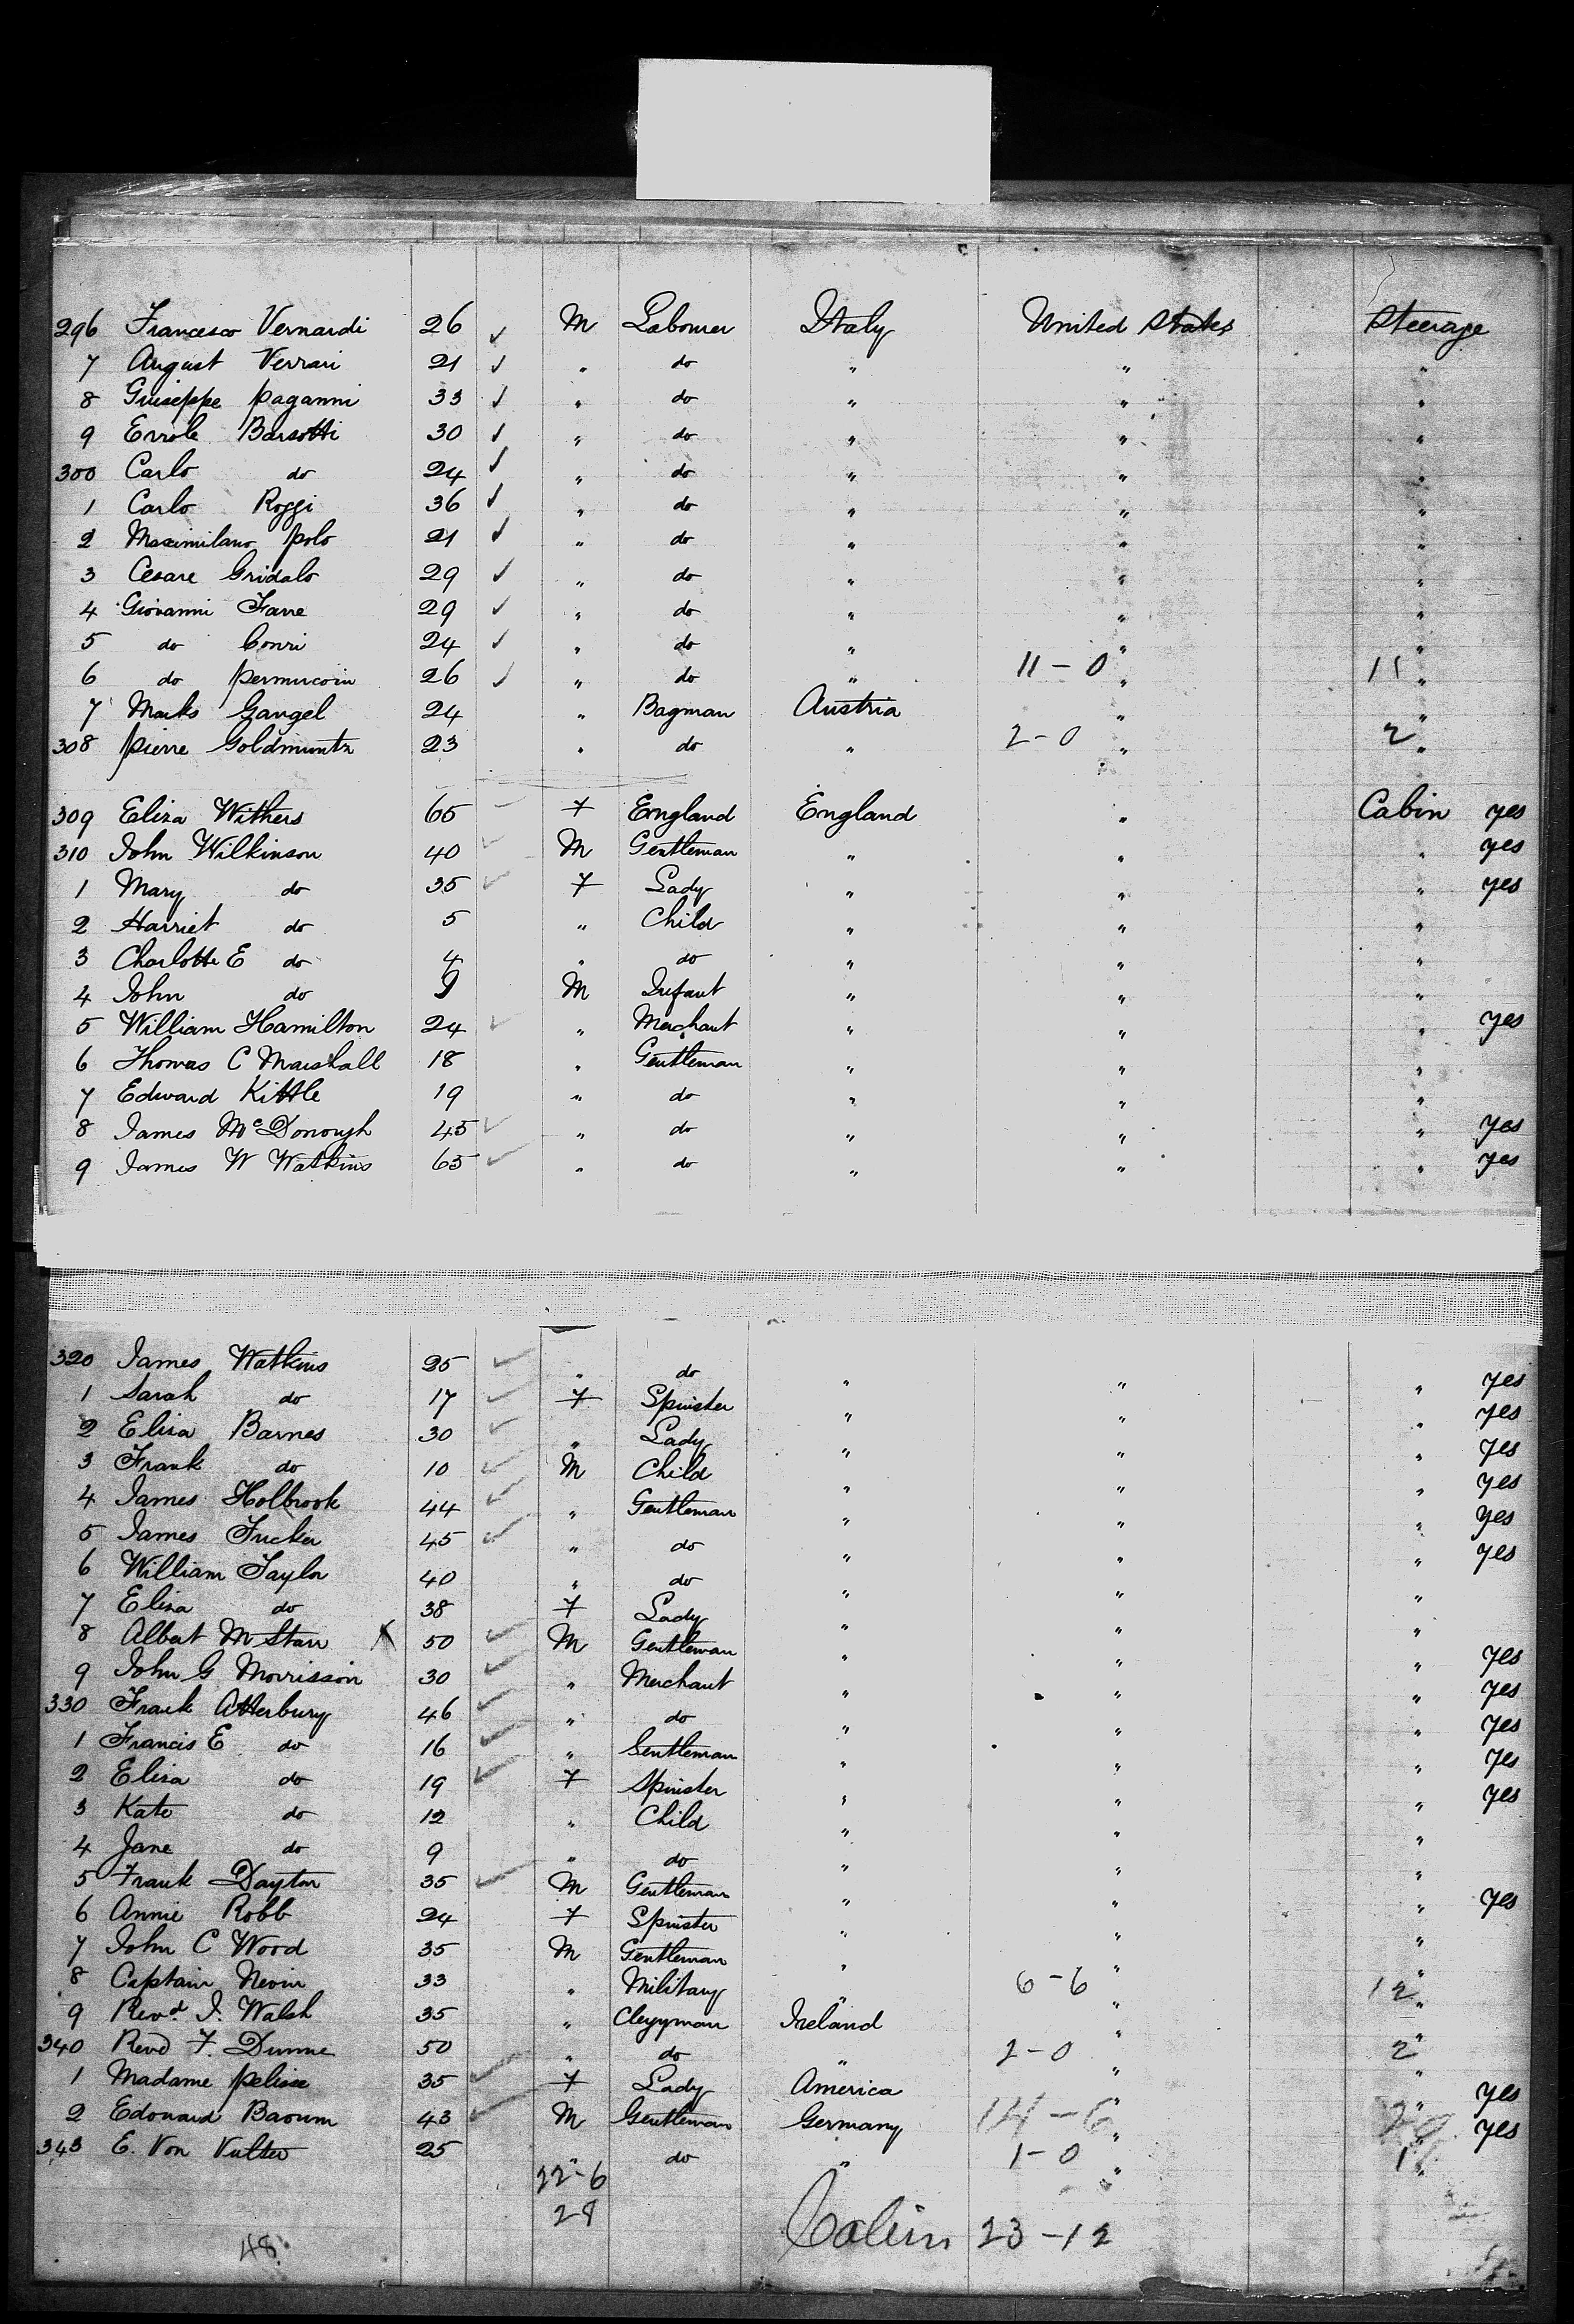 296 Francesco Vernardi 26 ✓ M Labourer Italy United States Steerage
7 August Verrari 21 ✓ " do " " "
8 Guiseppe paganni 33 ✓ " do " " "
9 Errole Barsotti 30 ✓ " do " " "
300 Carlo do 24 ✓ " do " " "
1 Carlo Roggi 36 ✓ " do " " "
2 Maximilano polo 21 ✓ " do " " "
3 Cesare Gridalo 29 ✓ " do " " "
4 Giovanni Farre 29 ✓ " do " " "
5 do Conri 24 ✓ " do " " "
6 do 26 ✓ " do " 11-0 " 11 "
7 Marks Gangel 24 " Bagman Austria " "
308 pierre Goldmuntz 23 " do " 2-0 " 2 "
309 Eliza Withers 65 F England England " Cabin yes
310 John Wilkinson 40 ✓ M Gentleman " " " yes
1 Mary do 35 ✓ F Lady " " " yes
2 Harriet do 5 " Child " " "
3 Charlotte E do 4 " do " " "
4 John do M Infant " " "
5 William Hamilton 24 ✓ " Merchant " " " yes
6 Thomas C Marshall 18 " Gentleman " " "
7 Edward Kittle 19 " do " " "
8 James McDonough 45 ✓ " do " " " yes
9 James W Watkins 65 ✓ " do " " " yes
320 James Watkins 25 ✓ " do " " " yes
1 Sarah do 17 ✓ F Spinster " " " yes
2 Eliza Barnes 30 ✓ " Lady " " " yes
3 Frank do 10 ✓ M Child " " " yes
4 James Holbrook 44 ✓ " Gentleman " " " yes
5 James Tucker 45 ✓ " do " " " yes
6 William Taylor 40 " do " " "
7 Eliza do 38 F Lady " " "
8 Albert M Starr X 50 ✓ M Gentleman " " " yes
9 John G Morrisson 30 ✓ " Merchant " " " yes
330 Frank Atterbury 46 ✓ " do " " " yes
1 Francis E do 16 ✓ " Gentleman " " " yes
2 Eliza do 19 ✓ F Spinster " " " yes
3 Kate do 12 " Child " " "
4 Jane do 9 " do " " "
5 Frank Dayton 35 ✓ M Gentleman " " " yes
6 Annie Robb 24 F Spinster " " "
7 John C Wood 35 M Gentleman " " "
8 Captain Nevin 33 " Military " 6-6 " 12 "
9 Revd. J. Walsh 35 " Clergyman Ireland " "
340 Revd F. Dunne 50 " do " 2-0 " 2 "
1 Madame pelisse 35 ✓ F Lady America " " yes
2 Edouard Baoum 43 ✓ M Gentleman Germany 14-6 " 20 " yes
343 E. Von Vulter 25 " do " 1-0 " 1 "
22-6
28
Cabin 23-12
48